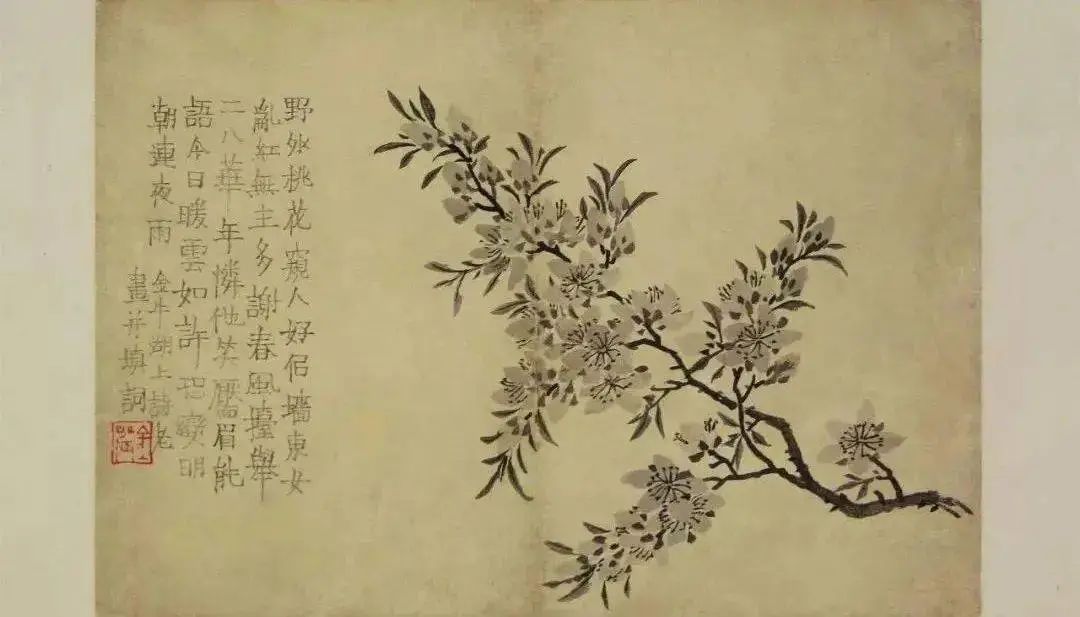 野外桃花窺人好佀墻東女
亂紅無主多謝春風擡舉
二八華年憐他笑靨眉能
語今日暖雲如許恐變明
朝連夜雨
金牛湖上詩老
畫并填詞